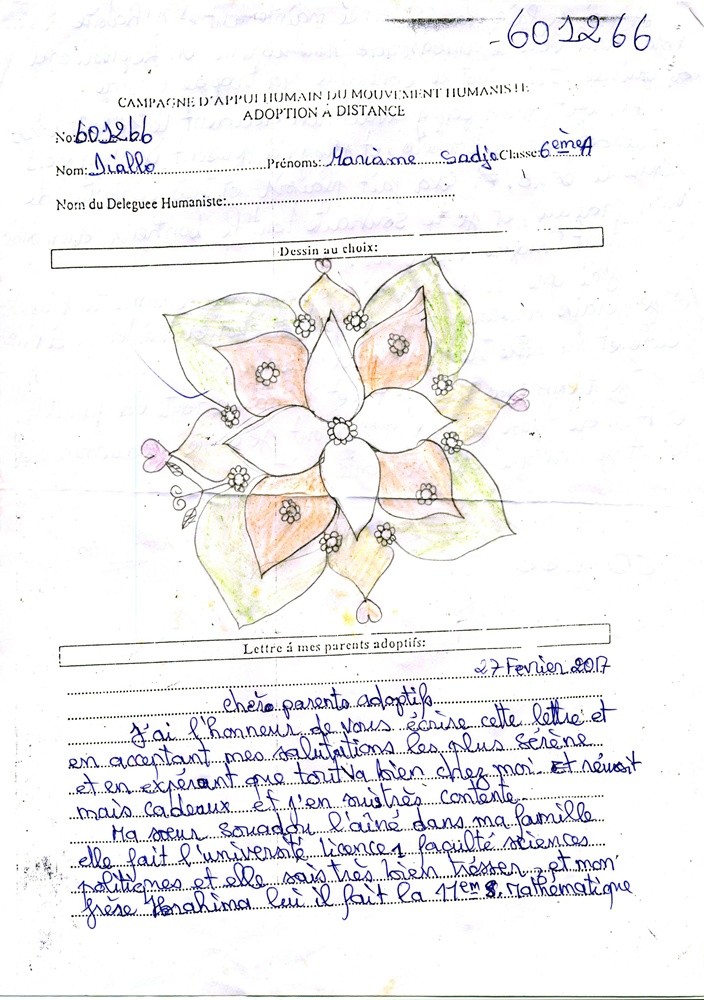 -601266
CAMPAGNE D'APPUI HUMAIN DU MOUVEMENT HUMANISTE
ADOPTION À DISTANCE
No: 601266
Nom: Diallo Prénoms: Mariame Sadjo Classe: 6èmeA
Nom du Deleguee Humaniste:
Dessin au choix:
Lettre á mes parents adoptifs:
27 Fevrier 2017
chèrs parents adoptifs
J'ai l'honneur de vous écrire cette lettre et
en acceptant mes salutations les plus sérène
et en expérant que tout va bien chez moi. Et
mais cadeaux et j'en suis très contente
Ma sœur Souadou l'aîné dans ma famille
elle fait l'université licence 1 faculté sciences
politiques et elle sais très bien trésser, et mon
frère Ibrahima lui il fait la 11em Mathématique